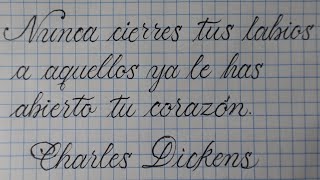 Nunca cierres tus labios
a aquellos ya le has
abierto tu corazón.
Charles Dickens